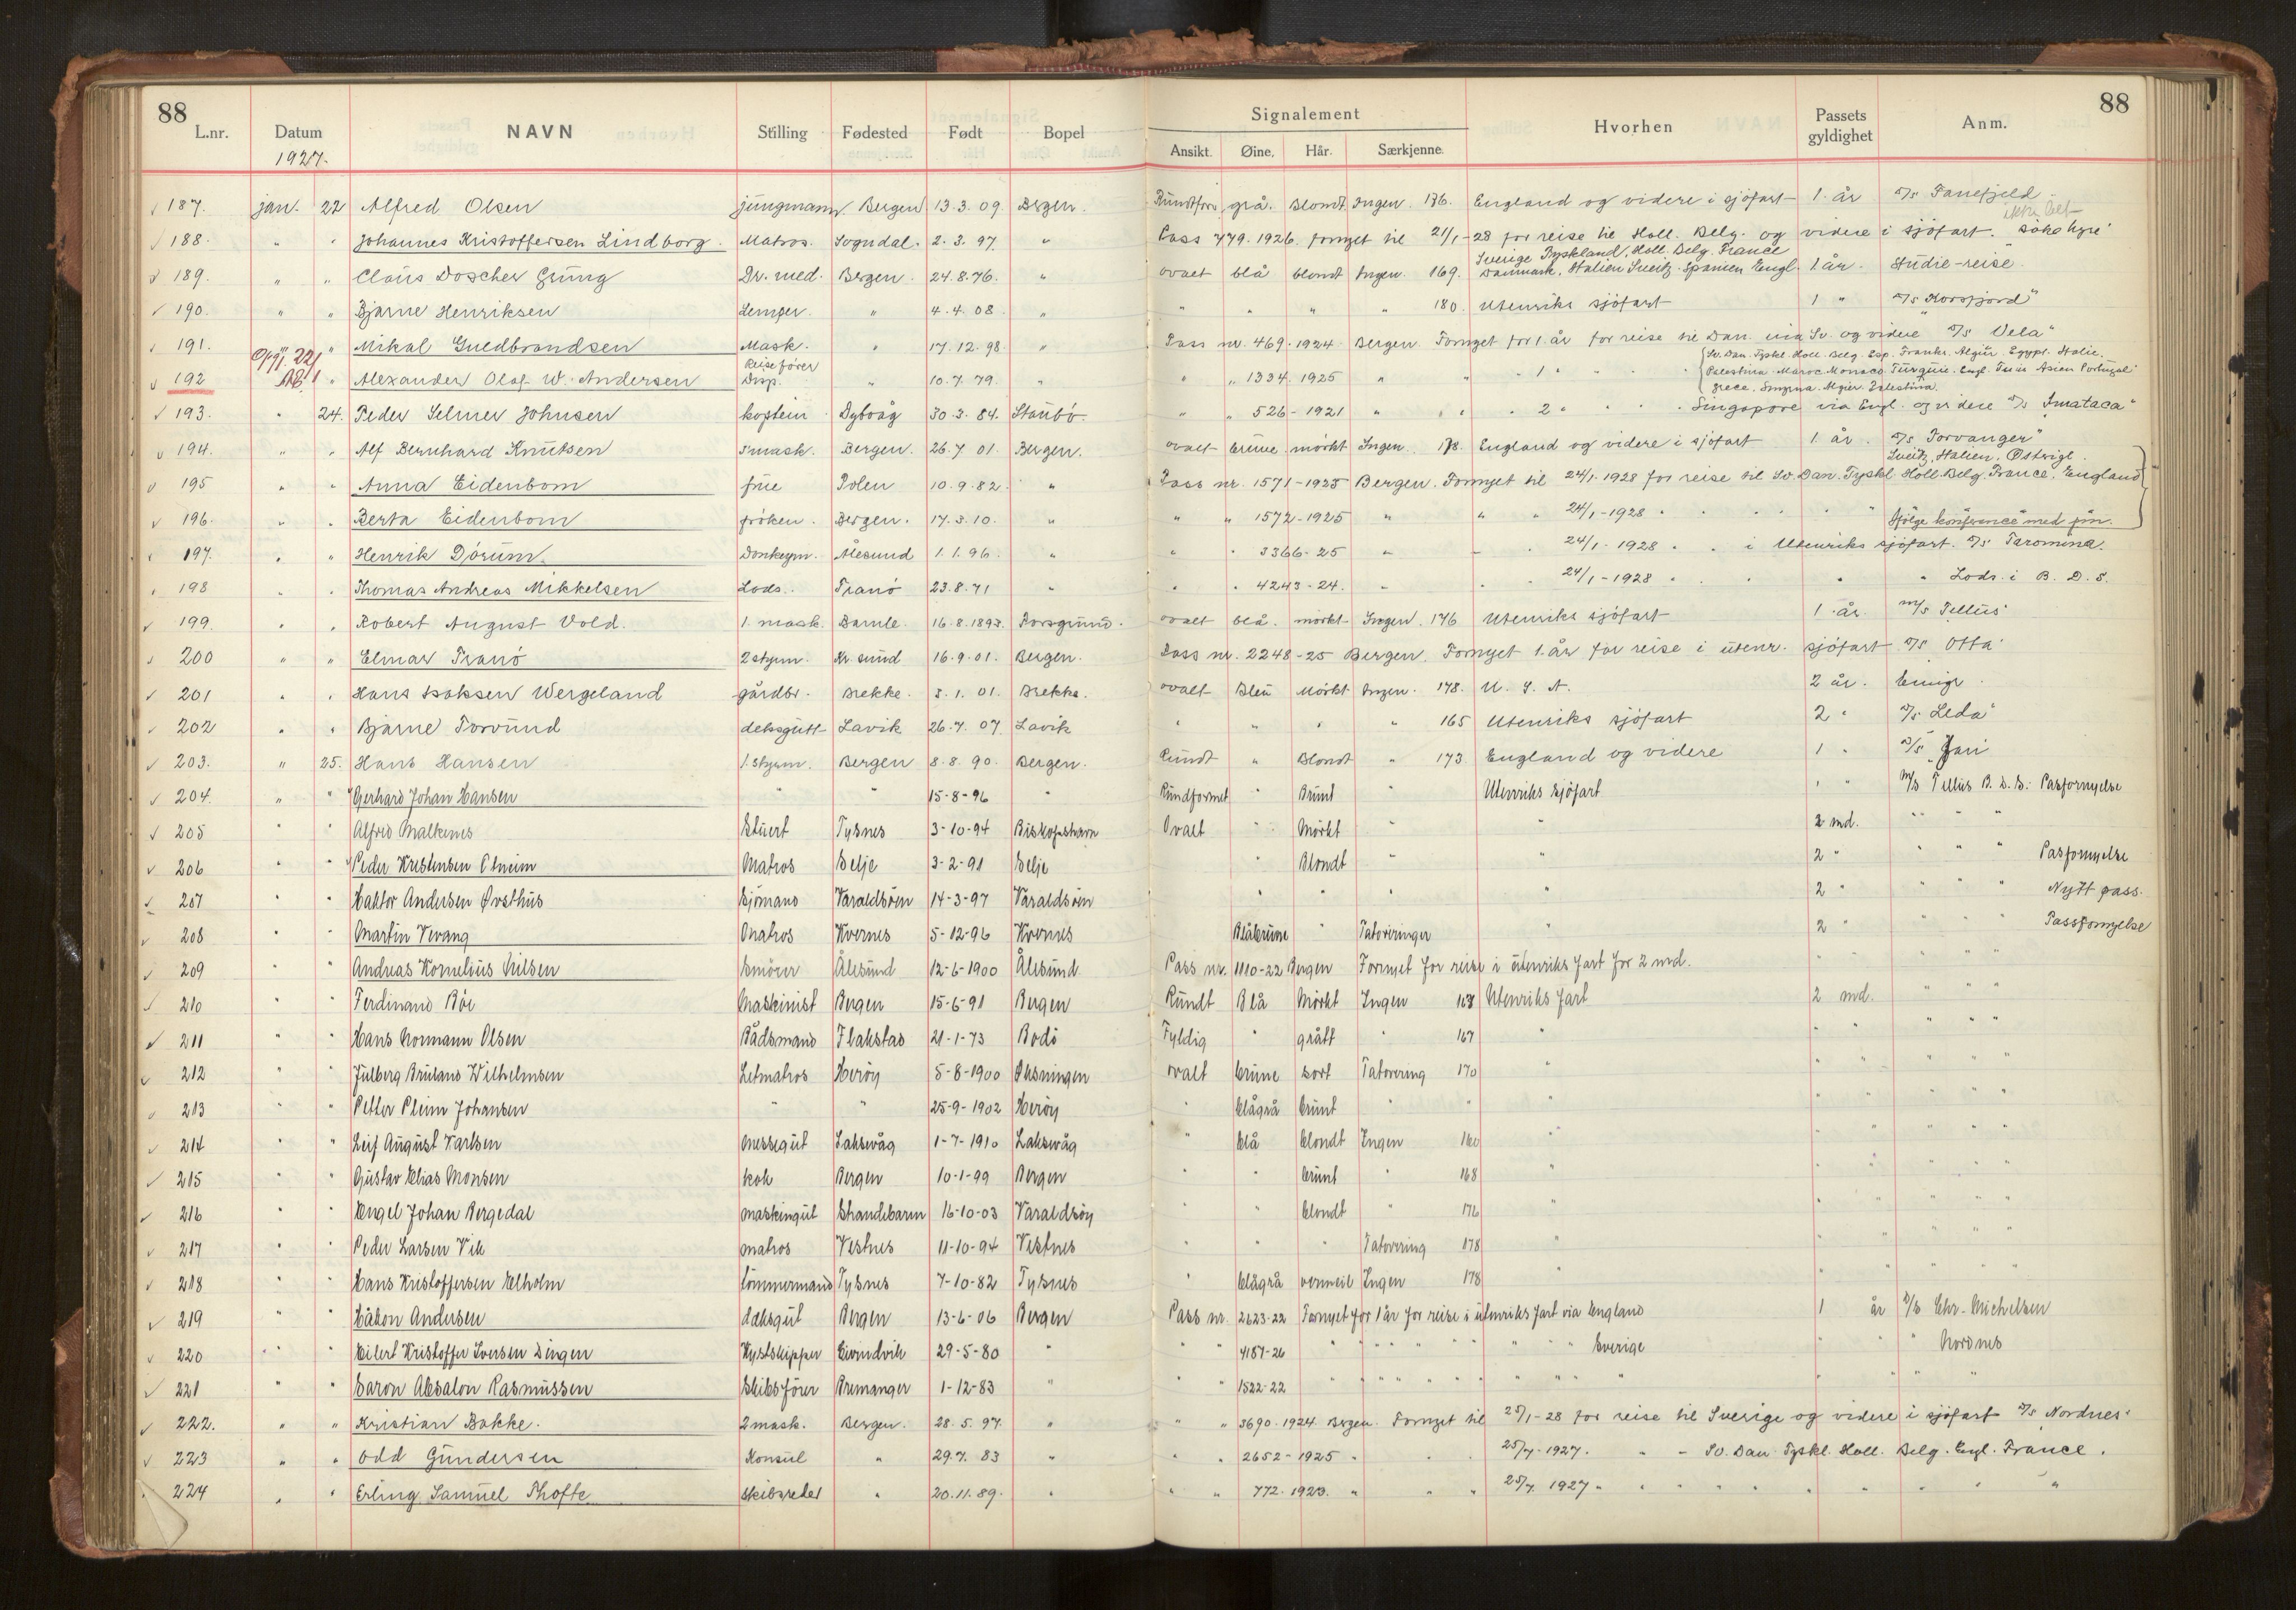 88
88
L.nr. Datum NAVN Stilling Fødested Født Bopel Signalement Hvorhen Passets gyldighet Anm.
1927. Ansikt. Øine. Hår. Særkjenne.
187. jan. 22 Alfred Olsen jungmann Bergen 13.3.09. Bergen. Rundtforn grå. Blondt Ingen. 176. England og videre i sjøfart 1 år D/s Fanefjeld
188. " " Johannes Kristoffersen Lindborg. Matros. Sogndal. 2.3.97. " Pass 779. 1926 fornyet til 21/1-28 for reise til Holl. Belg. og videre i sjøfart. søke hyre
Sverige Tyskland, Holl. Belg. France
189. " " Claus Doscher Grung Dr. med. Bergen. 24.8.76. " ovalt blå blondt Ingen. 169. Danmark, Italien Sveitz. Spanien Engl. 1 år. Studie-reise
190. " " Bjarne Henriksen Lemper. " 4.4.08. " " " " " 180. Utenriks sjøfart 1 " D/s Korsfjord"
191. " " Mikal Guldbrandsen Mask. " 17.12.98 " Pass nr. 469. 1924 Bergen. Fornyet for 1 år for reise til Dan. via Sv. og videre D/s Vela"
Reisefører Sv. Dan. Tyskl. Holl. Belg. Esp. Frankr. Algir. Egypt. Italie.
192 " Alexander Olaf W. Andersen Disp. " 10.7.79. " " " 1334. 1925 " " " 1 " Palestina Maroc Monaco Turquie. Engl. Portugal
Grece. Smyrna. Algier. Palestina.
193. " 24. Peder Selmer Johnsen kaptein Dybvåg 30.3.84. Staubø. " " 526-1921 " " " 2 " Singapore via Engl. og videre D/s Imataca"
194. " " Alf Bernhard Knutsen Smask. Bergen. 26.7.01. Bergen. ovalt brune mørkt Ingen. 178. England og videre i sjøfart 1 år. D/s Torvanger"
Sveitz, Italien, Østrigl.
195 " " Anna Eidenbom frue Polen 10.9.82. " Pass nr. 1571-1925 Bergen. Fornyet til 24/1 1928 for reise til Sv. Dan. Tyskl. Holl. Belg. France, England
196. " " Berta Eidenbom frøken. Bergen. 17.3.10. " " " 1572-1925 " " " 24/1-1928 " " " Ifølge konference med
197. " " Henrik Dørum. Donkeym. Ålesund 1.1.96. " " " 3366-25 " " " 24/1-1928 " " i Utenriks sjøfart. D/s Taromina.
198 " " Thomas Andreas Mikkelsen Lods. Tranø 23.8.71 " " " 4243-24. " " " 24/1-1928 " " " " Lods i B. D. S.
199. " " Robert August Vold. 1. mask. Bamle. 16.8.1893. Porsgrund. ovalt blå. mørkt Ingen. 176 Utenriks sjøfart 1 år M/s Tellus
200 " " Elmar Tranø 2 styrm. Kr.sund 16.9.01. Bergen. Pass nr. 2248-25 Bergen. Fornyet 1 år for reise i utenr. sjøfart D/s Otta
201 " " Hans Isaksen Wergeland gårdbr. Brekke. 3.1.01. Brekke. ovalt Blå Mørkt Ingen. 178. U. S. A. 2 år. Emigr.
202 " " Bjarne Torvund deksgutt Lavik 26.7.07. Lavik " " " " 165 Utenriks sjøfart 2 " D/s Leda"
203. " 25. Hans Hansen 1. styrm. Bergen 8.8.90. Bergen. Rundt " Blondt " 173 England og videre 1 " D/s Jari
204. " " Gerhard Johan Hansen " " 15-8-96 " Rundformet " Brunt " Utenriks Sjøfart " " M/s Tellus B. D. S. Pasfornyelse
205 " " Alfred Malkenes Stuert Tysnes 3-10-94 Biskopshavn Ovalt " Mørkt " " 2 md. " " "
206 " " Peder Kristensen Otneim Matros Selje 3-2-91 Selje " Blondt " " 2 " " " " Pasfornyelse
207 " " Haktor Andersen Østhus Sjømand Varaldsøen 14-3-97 Varaldsøen " " " " 2 " " " " Nytt pass.
208 " " Martin Vevang Matros Kvernes 5-12-96 Kvernes Blåbrune " Tatoveringer " 2 " " " " Passfornyelse
209 " " Andreas Kornelius Nilsen Smører Ålesund 12-6-1900 Ålesund Pass nr. 1110-22 Bergen Fornyet for reise i utenriks fart for 2 md. " " " " "
210 " " Ferdinand Bøe Maskinist Bergen 15-6-91 Bergen Rundt Blå Mørkt Ingen 168 Utenriks fart 2 md. " " "
211 " " Hans Normann Olsen Bådsmand Flakstad 21-1-73 Bodø Fyldig " grått " 167 " " " " " "
212 " " Julberg Bruland Wilhelmsen Letmatros Herøy 5-8-1900 Øksningen ovalt brune sort Tatovering 170 " " " " " "
213 " " Petter Pleim Johansen " " 25-9-1902 Herøy " blågrå brunt " " " " " " " "
214 " " Leif August Karlsen Messegut Laksevåg 1-7-1910 Laksevåg " blå blondt Ingen 160 " " " " " "
215 " " Gustav Elias Monsen kok Bergen 10-1-99 Bergen " " brunt " 168 " " " " " "
216 " " Engel Johan Bergedal maskingut Strandebarm 16-10-03 Varaldsøy " " blondt " 176 " " " " " "
217 " " Peder Larsen Vik matros Vestnes 11-10-94 Vestnes " " " Tatovering 178 " " " " " "
218 " " Hans Kristoffersen Elholm tømmermand Tysnes 7-10-82 Tysnes " blågrå Ingen 178 " " " " " "
219 " " Håkon Andersen daksgut Bergen 13-6-06 Bergen Pass nr. 2623-22 Fornyet for 1 år for reise i utenriks fart via England 1 år D/s Chr. Michelsen
220 " " Eilert Kristoffer Iversen Dingen Kystskipper Eivindvik 29-5-80 " " " 4187-26 " " " " " " " Sverige " " " Nordnes
221 " " Saron Absalon Rasmussen Skibsfører Bremanger 1-12-83 " " " 1522-22 " " " " " " " " " " "
222. " " Kristian Bakke. 2 mask. Bergen. 28.5.97. " " " 3690-1924 Bergen. Fornyet til 25/1-28 for reise til Sverige og videre i sjøfart D/s Nordnes
223 " " Odd Gundersen Konsul " 29.7.83 " " " 2652-1925 " " " 25/7-1927. " " Sv. Dan. Tyskl. Holl. Belg. Engl. France.
224 " " Erling Samuel Thofte skibsreder " 20.11.89. " " " 772. 1923. " " " 25/7 1927 " " " " " " " "